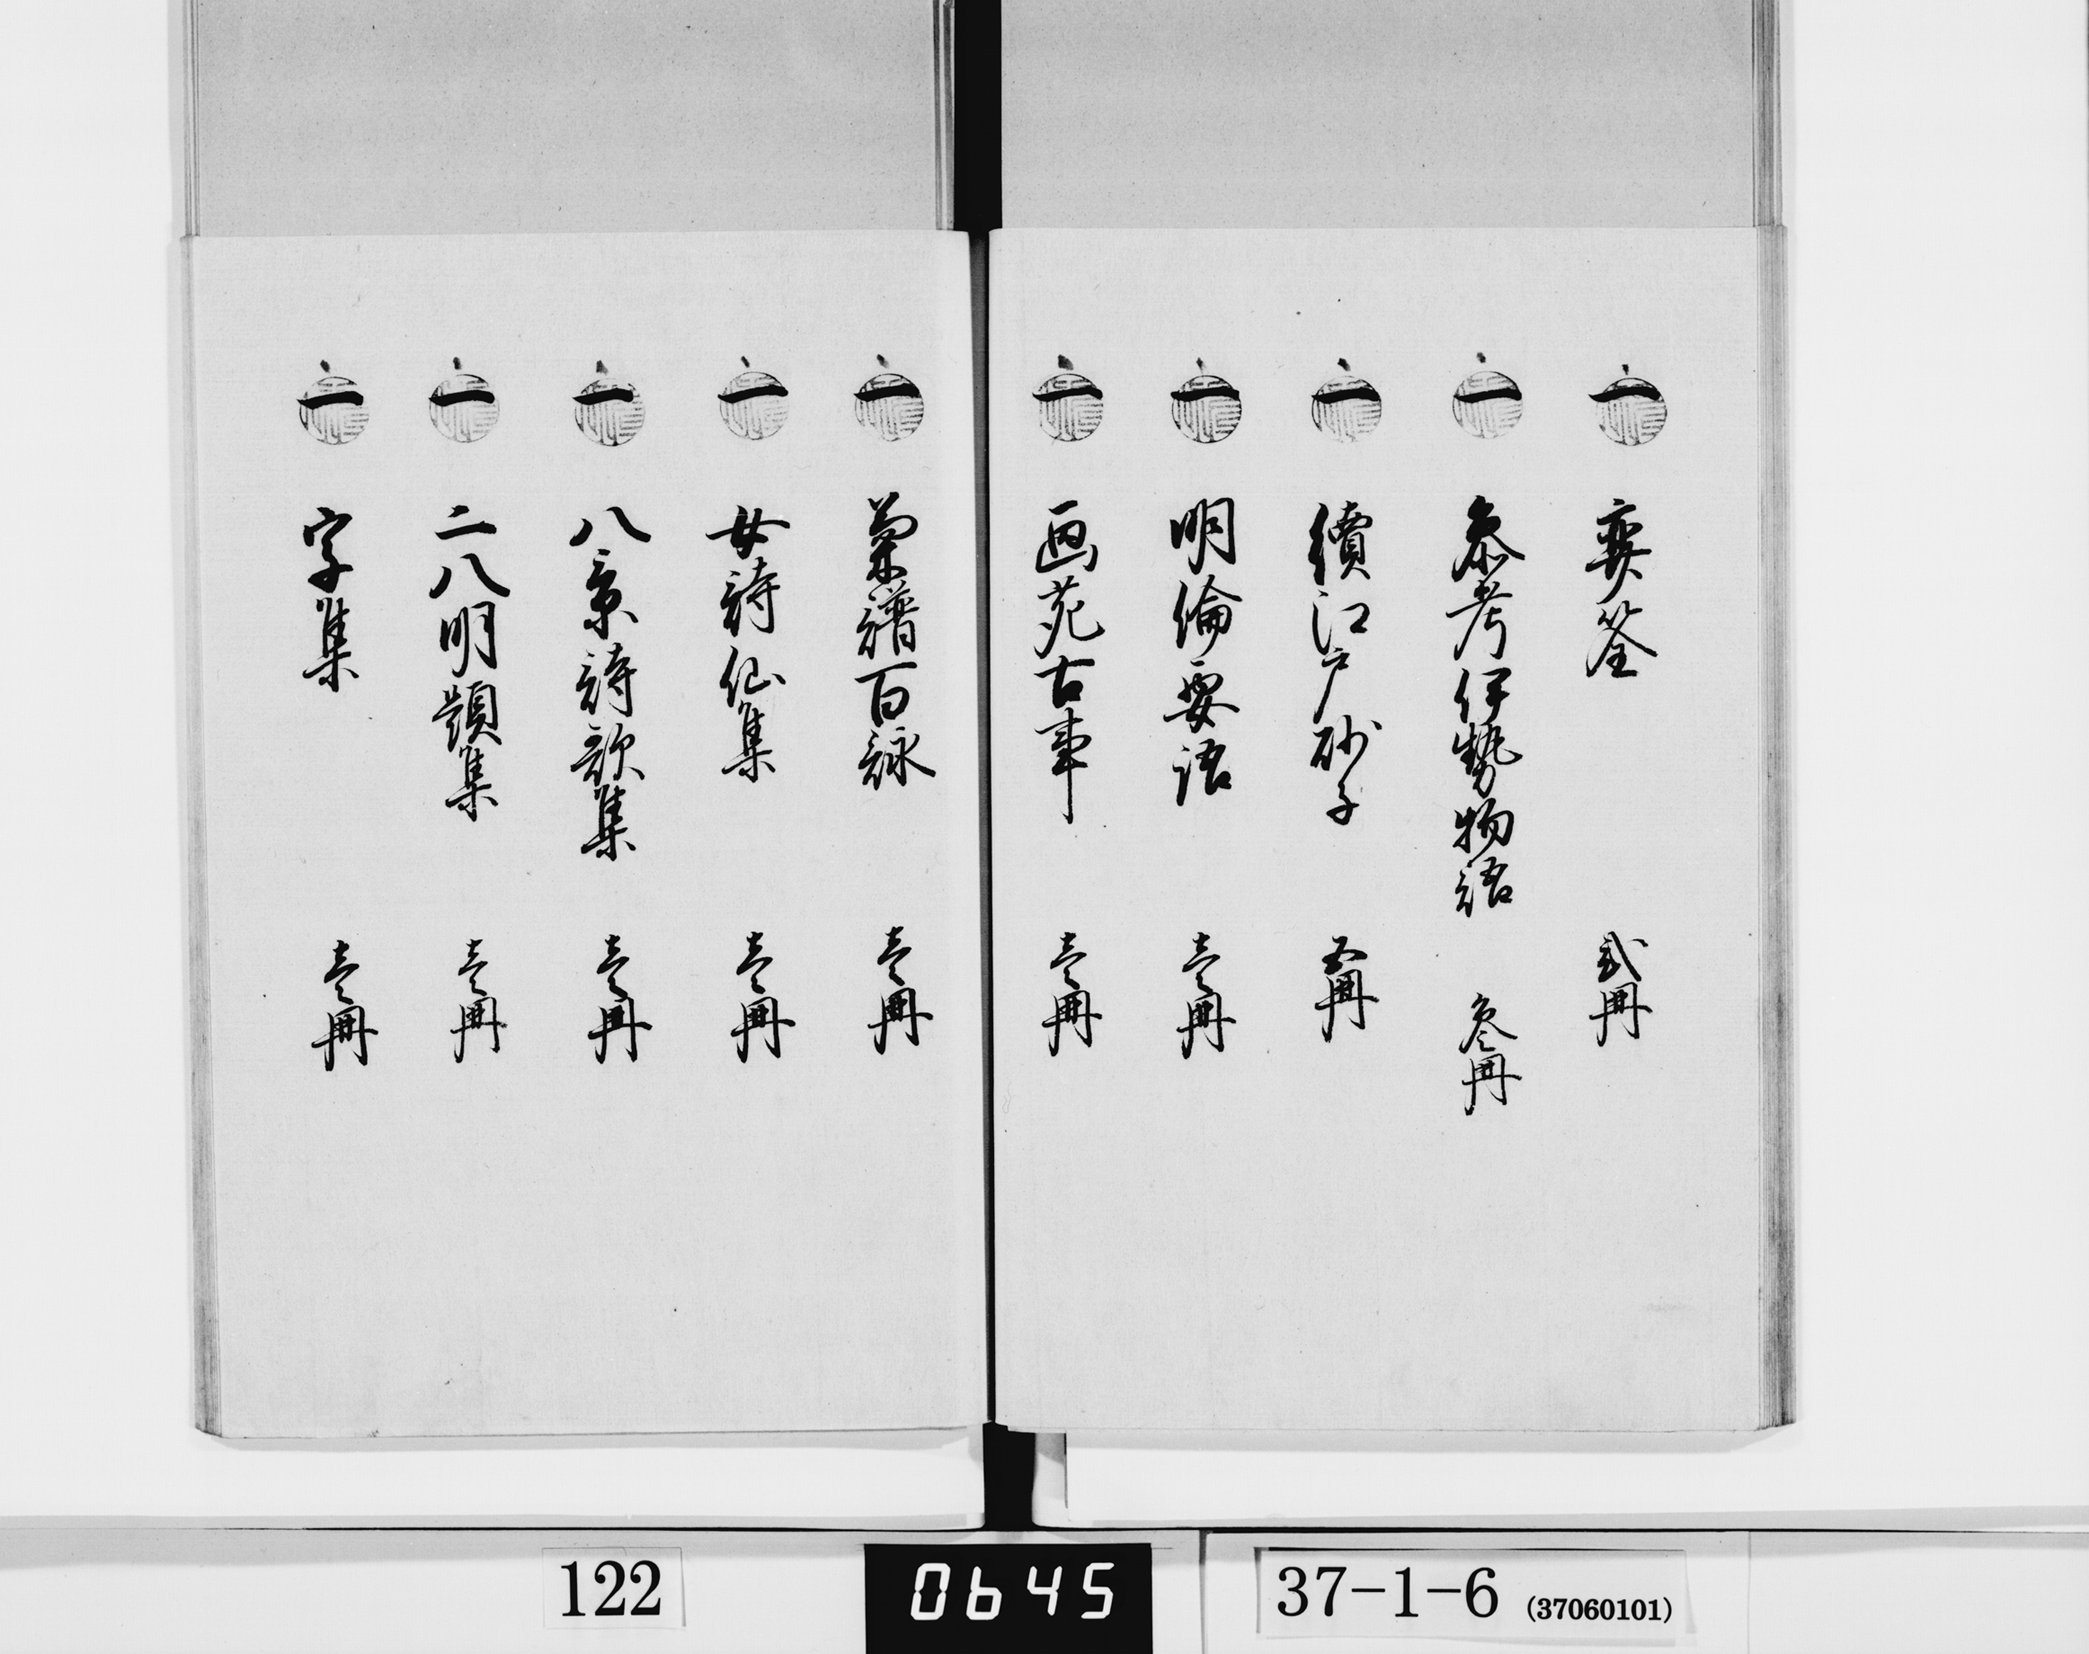 一 奕筌 弐冊
一 参考伊勢物語 参冊
一 續江戸砂子 五冊
一 明倫要語 壱冊
一 画苑古事 壱冊
一 菊譜百詠 壱冊
一 女詩仙集 壱冊
一 八景詩歌集 壱冊
一 二八明題集 壱冊
一 字集 壱冊
122
0645
37-1-6 (37060101)